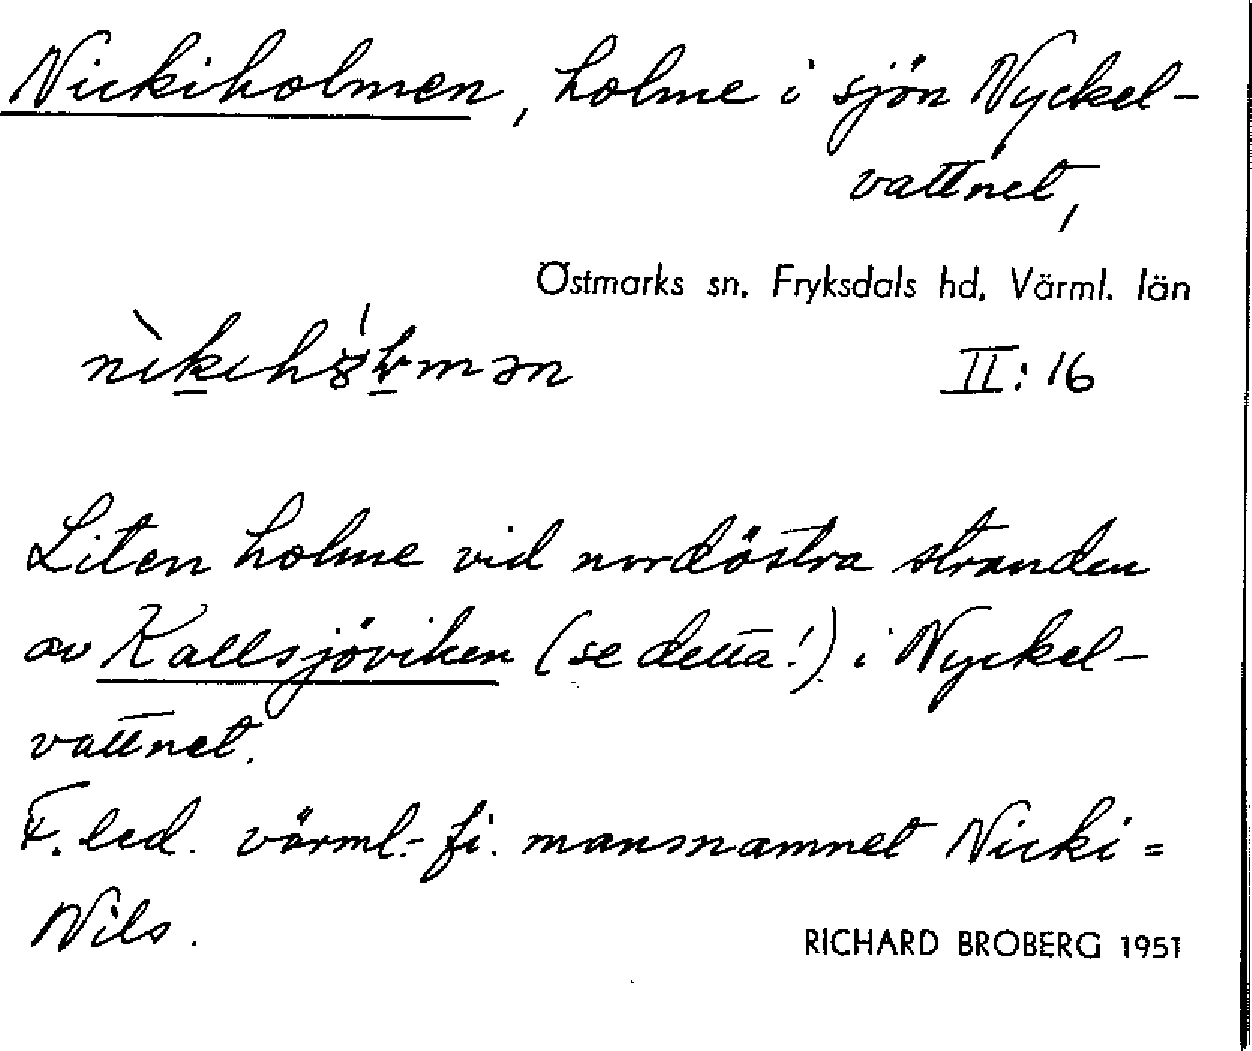 Nickiholmen, holme i sjön Nyckel-
vattnet,
Östmarks sn. Fryksdals hd. Värml. län
II:16
Liten holme vid nordöstra stranden
av Kallsjöviken (se detta!) i Nyckel-
vattnet.
F. led. värml.-fi. mansnamnet Nicki =
Nils.
RICHARD BROBERG 1951